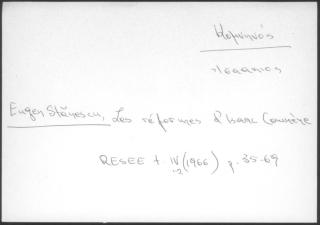 Κομνηνός
Ισαακιος
Eugen Stănescu, Les réformes d'Isaac Comnène
RESEE t. IV (1966) p. 35-69
1-2